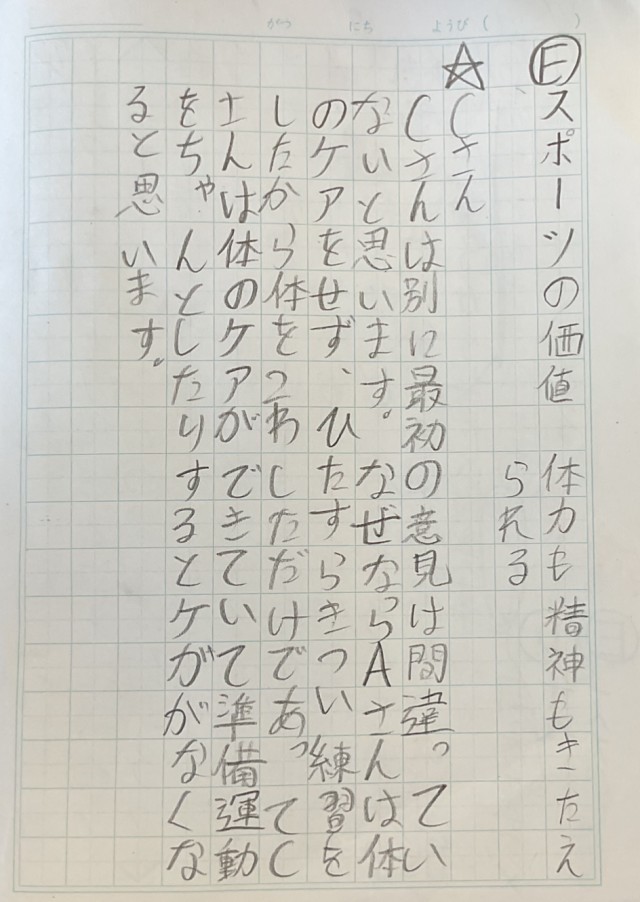 がつ にち ようび( )
Ⓔスポーツの価値 体力も精神もきたえ
られる
☆Cさん
Cさんは別に最初の意見は間違ってい
ないと思います。なぜならAさんは体
のケアをせず、ひたすらきつい練習を
したから体をこわしただけであってC
さんは体のケアができていて準備運動
をちゃんとしたりするとケガがなくな
ると思います。